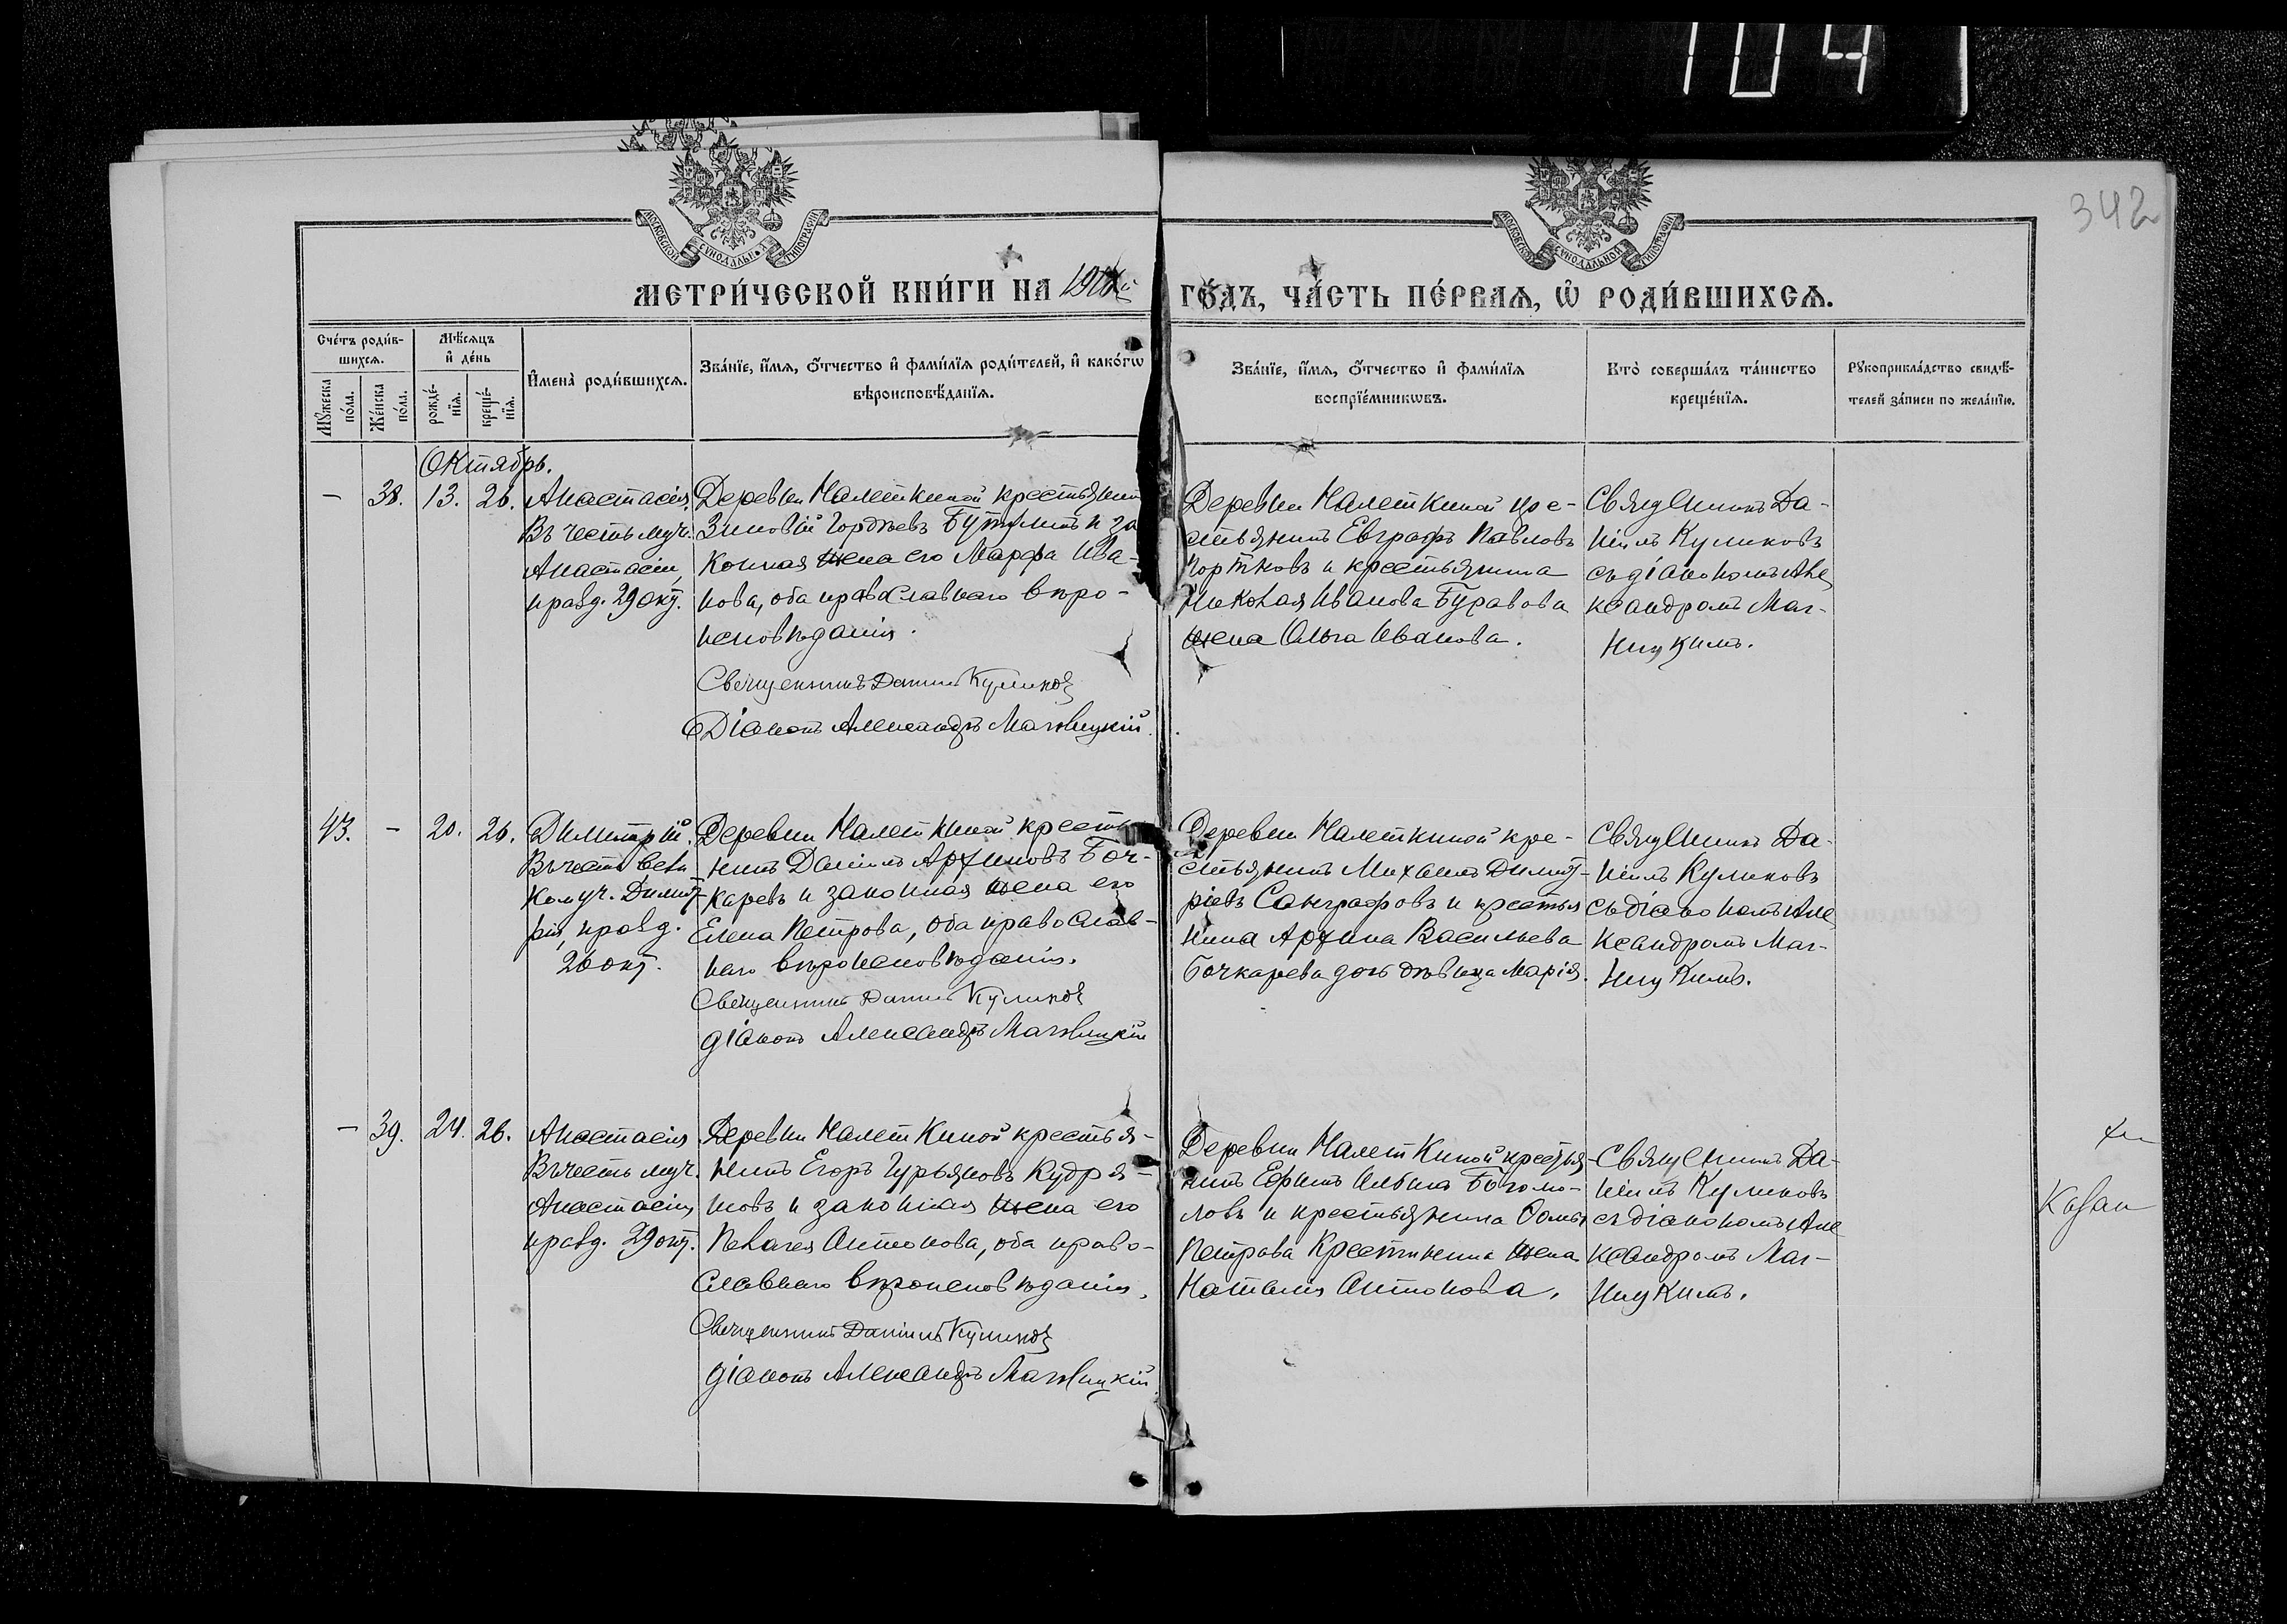 104
342
МОСКОВСКОЙ СѴНОДАЛЬНОЙ ТИПОГРАФІИ
МОСКОВСКОЙ СѴНОДАЛЬНОЙ ТИПОГРАФІИ
МЕТРИ́ЧЕСКОЙ КНИ́ГИ НА
ГО́ДЪ, ЧА́СТЬ ПЕ́РВАЯ, Ѡ҆ РОДИ́ВШИХСЯ.
Сче́тъ роди́в-
шихся.
Мꙋ́жеска
по́ла.
Же́нска
по́ла.
Мѣ́сяцъ
и҆ де́нь
рожде́-
нїя.
креще́-
нїя.
И҆мена̀ роди́вшихся.
Зва́нїе, и҆́мя, ѻ҆́тчество и҆ фами́лїя роди́телей, и҆ како́гѡ
вѣроисповѣ́данїя.
Зва́нїе, и҆́мя, ѻ҆́тчество и҆ фами́лїя
воспрїе́мникѡвъ.
Кто̀ соверша́лъ та́инство
креще́нїя.
Рꙋкоприкла́дство свидѣ́-
телей за́писи по жела́нїю.
Октябрь.
– 38. 13. 26.
Анастасія.
Въ честь муч.
Анастасіи,
празд. 29 окт.
Деревни Налеткиной крестьянин
Зиновій Гордѣевъ и за
конная жена его Марфа Ива-
нова, оба православнаго вѣро-
исповѣданія.
Священникъ Даніилъ Куликовъ
Діаконъ Александръ Магницкій.
Деревни Налеткиной кре-
стьянинъ Евграфъ Павловъ
и крестьянина
Николая Иванова Буравова
жена Ольга Иванова.
Священникъ Да-
ніилъ Куликовъ
съ діакономъ Але
ксандромъ Маг-
ницкимъ.
43. – 20. 26.
Димитрій.
Въ честь вели
комуч. Димит-
рія, празд.
26 окт.
Деревни Налеткиной кресть
нинъ Даніилъ Архиповъ Боч-
каревъ и законная жена его
Елена Петрова, оба православ-
наго вѣроисповѣданія.
Священникъ Даніилъ Куликовъ
діаконъ Александръ Магницкій
Деревни Налеткиной кре-
стьянинъ Михаилъ Димит-
ріевъ и крестья
нина Архипа Васильева
Бочкарева дочь дѣвица Марія.
Священникъ Да-
ніилъ Куликовъ
съ діакономъ Але
ксандромъ Маг-
ницкимъ.
– 39. 24. 26.
Анастасія
Въ честь муч.
Анастасіи,
празд. 29 окт.
Деревни Налеткиной крестья-
нинъ Егоръ Гурьяновъ Кудря-
шовъ и законная жена его
Пелагея Антонова, оба право-
славнаго вѣроисповѣданія.
Священникъ Даніилъ Куликовъ
діаконъ Александръ Магницкій.
Деревни Налеткиной крестья-
нинъ Ефимъ
ловъ и крестьянина Ѳомы
Петрова жена
Наталія Антонова.
Священникъ Да-
ніилъ Куликовъ
съ діакономъ Але
ксандромъ Маг-
ницкимъ.